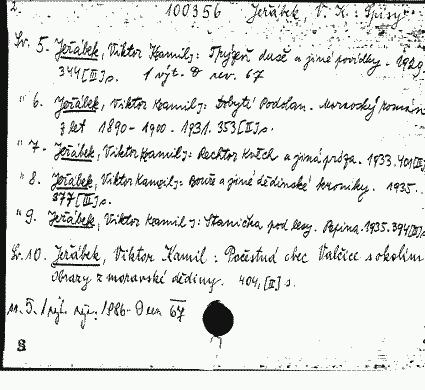 2. 100356 Jeřábek, V. K.: Spisy
Sv. 5. Jeřábek, Viktor Kamil: Trýzeň duše a jiné povídky. 1929
344 [II] s. 1 výt. D rev. 67
" 6. Jeřábek, Viktor Kamil: Dobytí Podolan. Moravský román
z let 1890-1900. 1931. 353 [II] s.
" 7. Jeřábek, Viktor Kamil: Rechtor Krch a jiná próza. 1933. 401 [II] s.
" 8. Jeřábek, Viktor Kamil: Bouře a jiné dědinské kroniky. 1935.
377 [II] s.
" 9. Jeřábek, Viktor Kamil: Stanička pod lesy. 1935. 394 [II] s.
Sv. 10. Jeřábek, Viktor Kamil: Počestná obec Valčice s okolím
Obrazy z moravské dědiny. 404, [II] s.
sv. 5. 1 výt. 1986- D rev 67